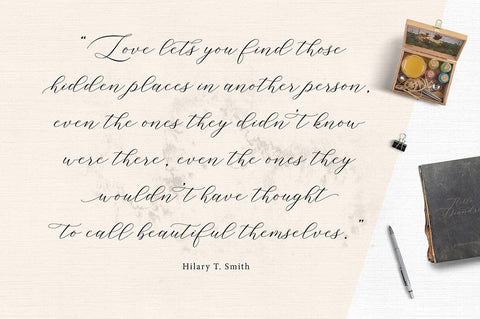 "Love lets you find those
hidden places in another person,
even the ones they didn't know
were there, even the ones they
wouldn't have thought
to call beautiful themselves."
Hilary T. Smith